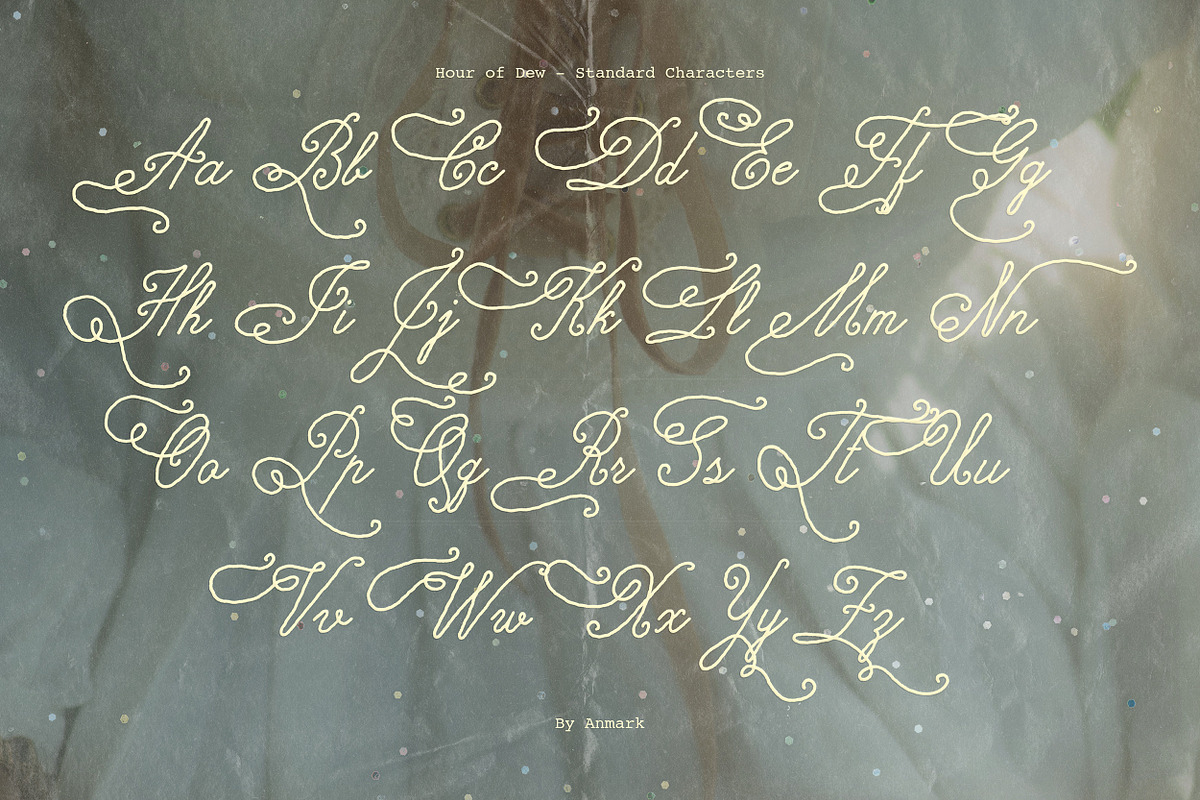 Hour of Dew - Standard Characters
Aa Bb Cc Dd Ee Ff Gg
Hh Ii Jj Kk Ll Mm Nn
Oo Pp Qq Rr Ss Tt Uu
Vv Ww Xx Yy Zz
By Anmark